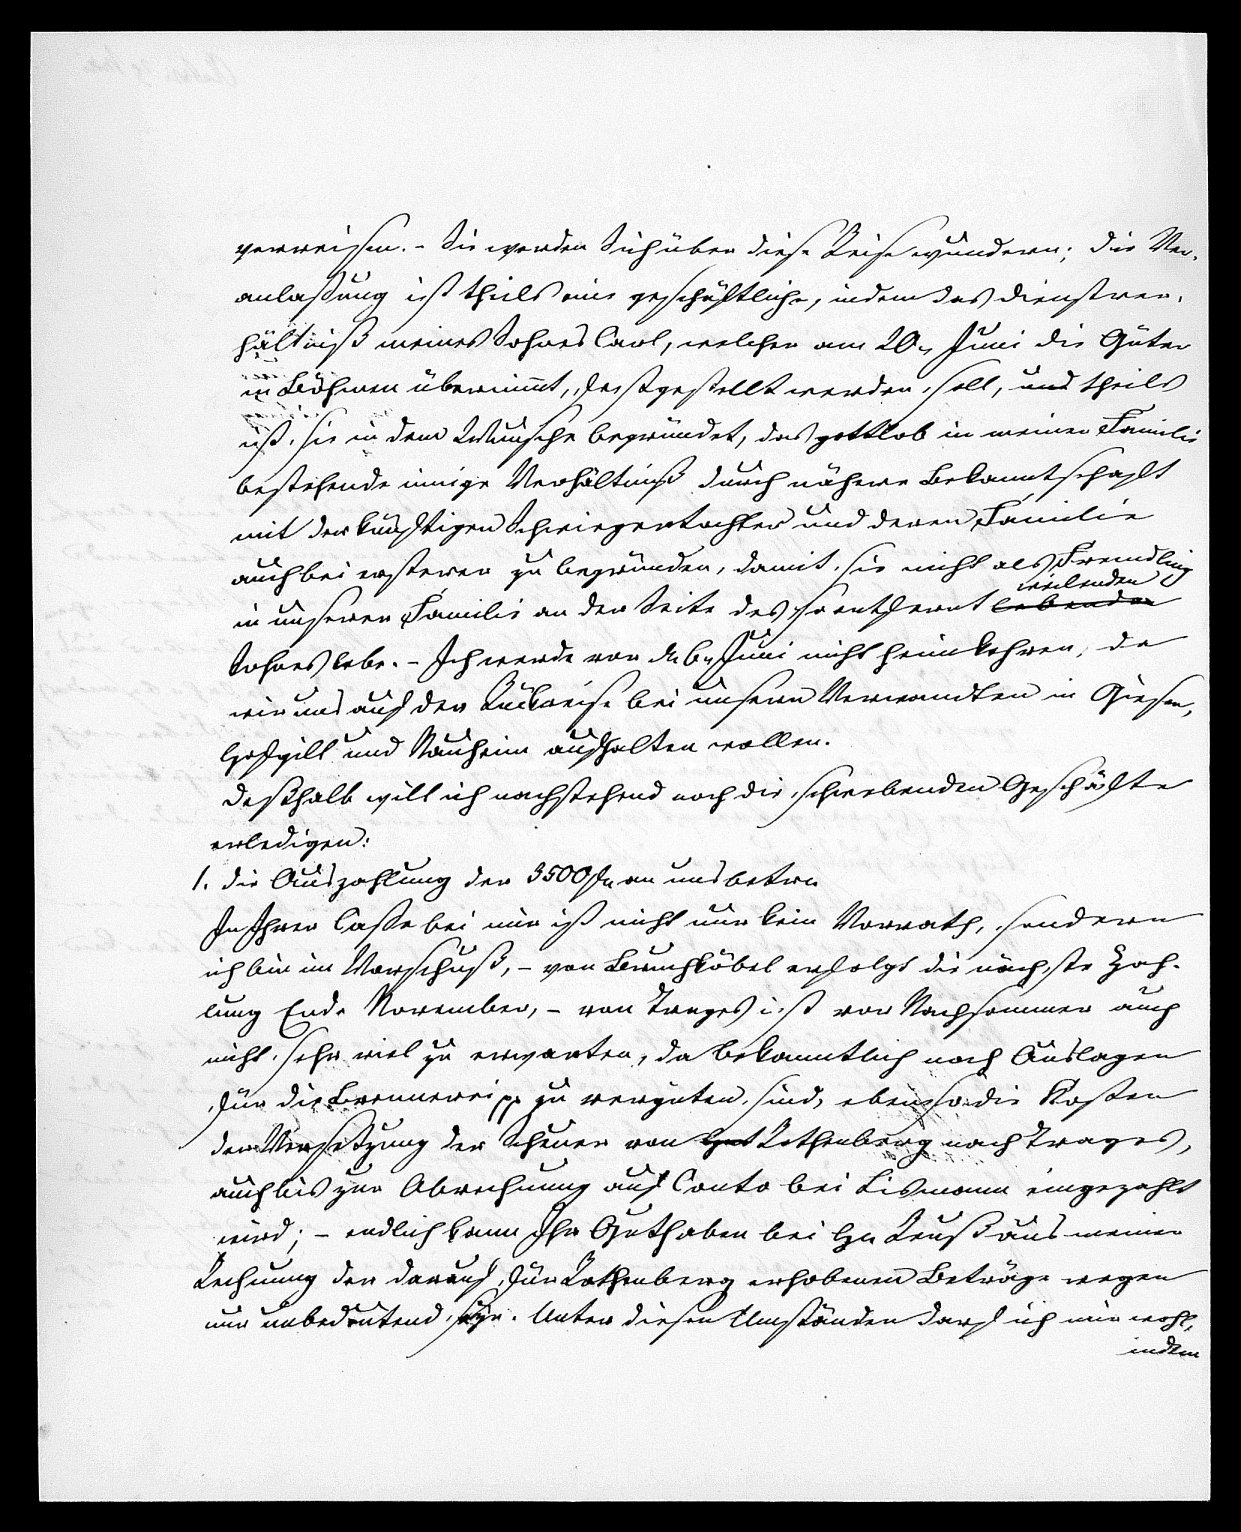 verreisen. - Sie werden Sich über diese Reise wundern; die Ver-
anlaßung ist theils eine geschäftliche, indem das Dienstver-
hältniß meines Sohnes Carl, welcher am 20n Juni die Güter
in Böhmen übernimmt, festgestellt werden soll, und theils
ist sie in dem Wunsche begründet, das gottlob in meiner Familie
bestehende innige Verhältniß durch nähere Bekanntschaft
mit der künftigen Schwiegertochter und deren Familie
auch bei ersterer zu begründen, damit sie nicht als Fremdling
in unserer Familie an der Seite des so entfernt lebenden weilenden
Sohnes lebe. - Ich werde vor dem 6n Juni nicht heimkehren, da
wir uns auf der Rückreise bei unsern Verwandten in Giesen,
und Nauheim aufhalten wollen.
deßhalb will ich nachstehend noch die schwebenden Geschäfte
erledigen:
1. die Auszahlung der 3500 fl an uns betrn
In Ihrer Casse bei mir ist nicht nur kein Vorrath, sondern
ich bin im Vorschuß, - von Bruchköbel erfolgt die nächste Zah-
lung Ende November, - von Trages ist vor Nachsommer auch
nicht sehr viel zu erwarten, da bekanntlich noch Auslagen
für die Brennerei pp zu vergüten sind, ebenso die Kosten
der Versetzung der Scheuer von Hof Rothenberg nach Trages,
auch bis zur Abrechnung auf Conto bei eingezahlt
wird; - endlich kann Ihr Guthaben bei Hn Reuß aus meiner
Rechnung der darauf für Rothenberg erhobenen Beträge wegen
nur unbedeutend seyn. Unter diesen Umständen darf ich mir wohl,
indem